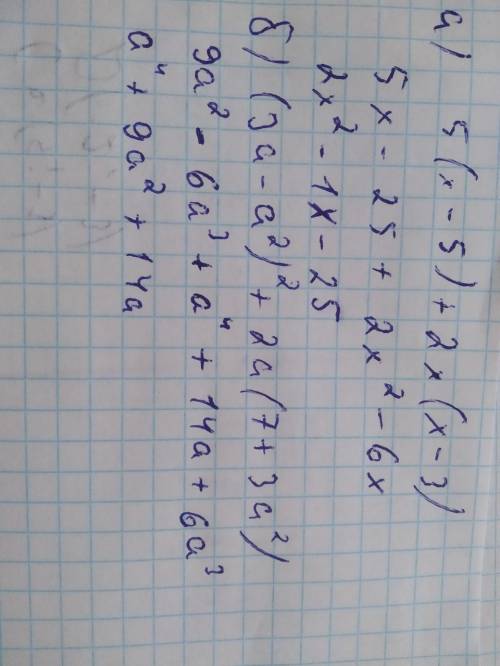 а) 5(x-5)+2x(x-3)
5x-25+2x²-6x
2x²-1x-25
б) (3a-a²)²+2a(7+3a²)
9a²-6a³+a⁴+14a+6a³
a⁴+9a²+14a